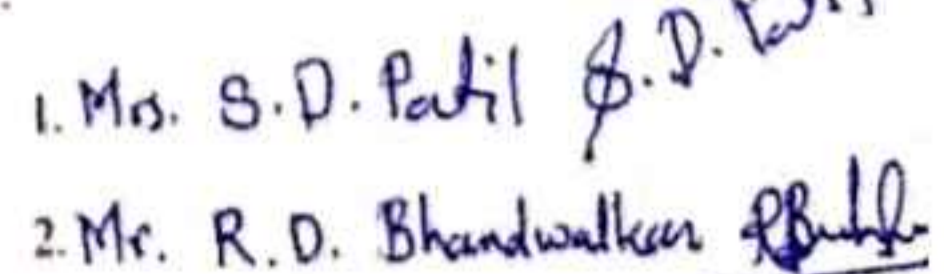 1. Mrs. S.D. Patil S.D. Patil
2. Mr. R.D. Bhandwalkar